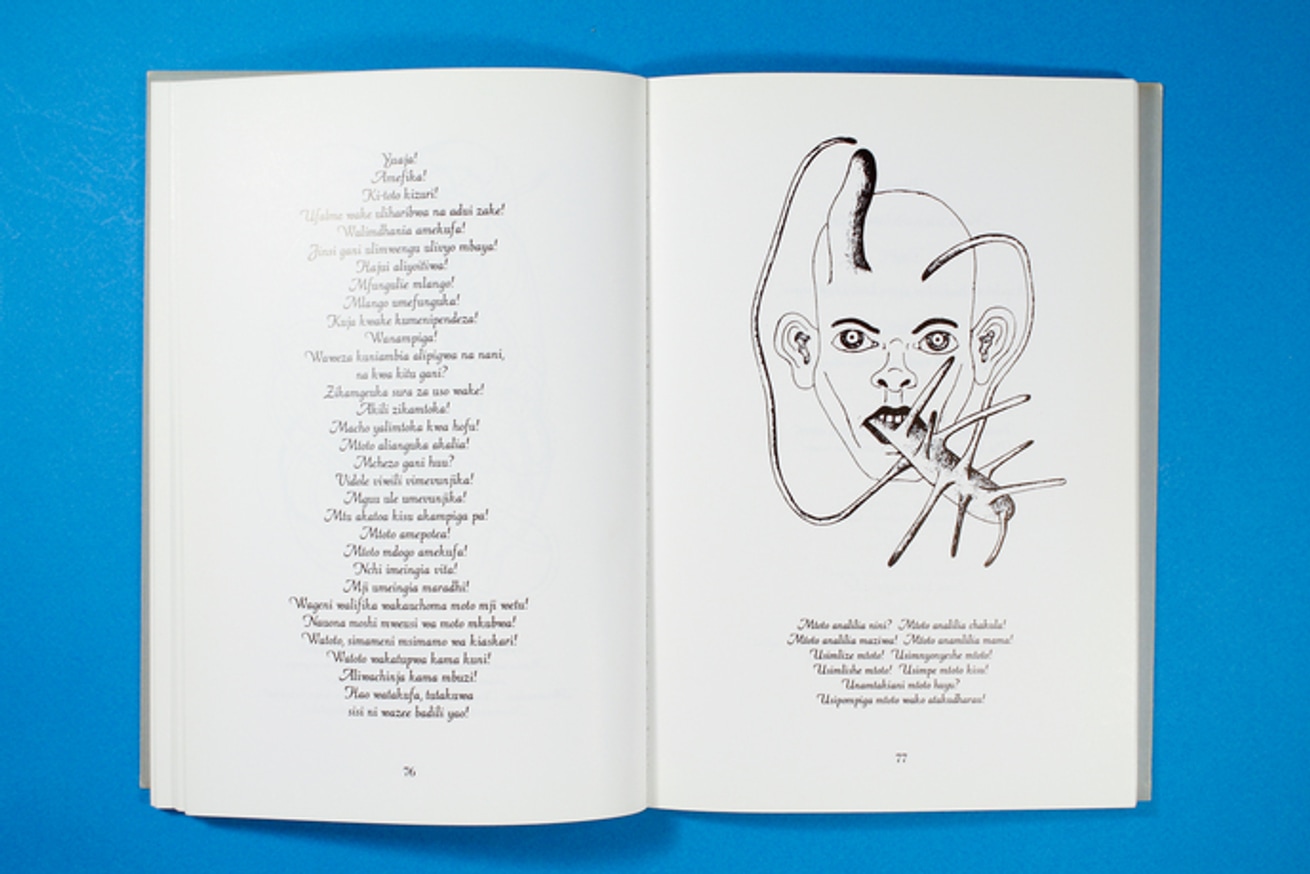 Yuaja!
Amefika!
Ki-toto kizuri!
Ufalme wake uliharibwa na adui zake!
Walimdhania amekufa!
Jinsi gani ulimwengu ulivyo mbaya!
Hajui aliyoitiwa!
Mfungulie mlango!
Mlango umefunguka!
Kuja kwake kumenipendeza!
Wanampiga!
Waweza kuniambia alipigwa na nani,
na kwa kitu gani?
Zikamgeuka sura za uso wake!
Akili zikamtoka!
Macho yalimtoka kwa hofu!
Mtoto alianguka akalia!
Mchezo gani huu?
Vidole viwili vimevunjika!
Mguu ule umevunjika!
Mtu akatoa kisu akampiga pa!
Mtoto amepotea!
Mtoto mdogo amekufa!
Nchi imeingia vita!
Mji umeingia maradhi!
Wageni walifika wakauchoma moto mji wetu!
Nauona moshi mweusi wa moto mkubwa!
Watoto, simameni msimamo wa kiaskari!
Watoto wakatupwa kama kuni!
Aliwachinja kama mbuzi!
Hao watakufa, tutakuwa
sisi ni wazee badili yao!
76
Mtoto analilia nini? Mtoto analilia chakula!
Mtoto analilia maziwa! Mtoto anamlilia mama!
Usimlize mtoto! Usimnyonyeshe mtoto!
Usimlishe mtoto! Usimpe mtoto kisu!
Unamtakiani mtoto huyu?
Usipompiga mtoto wako atakudharau!
77